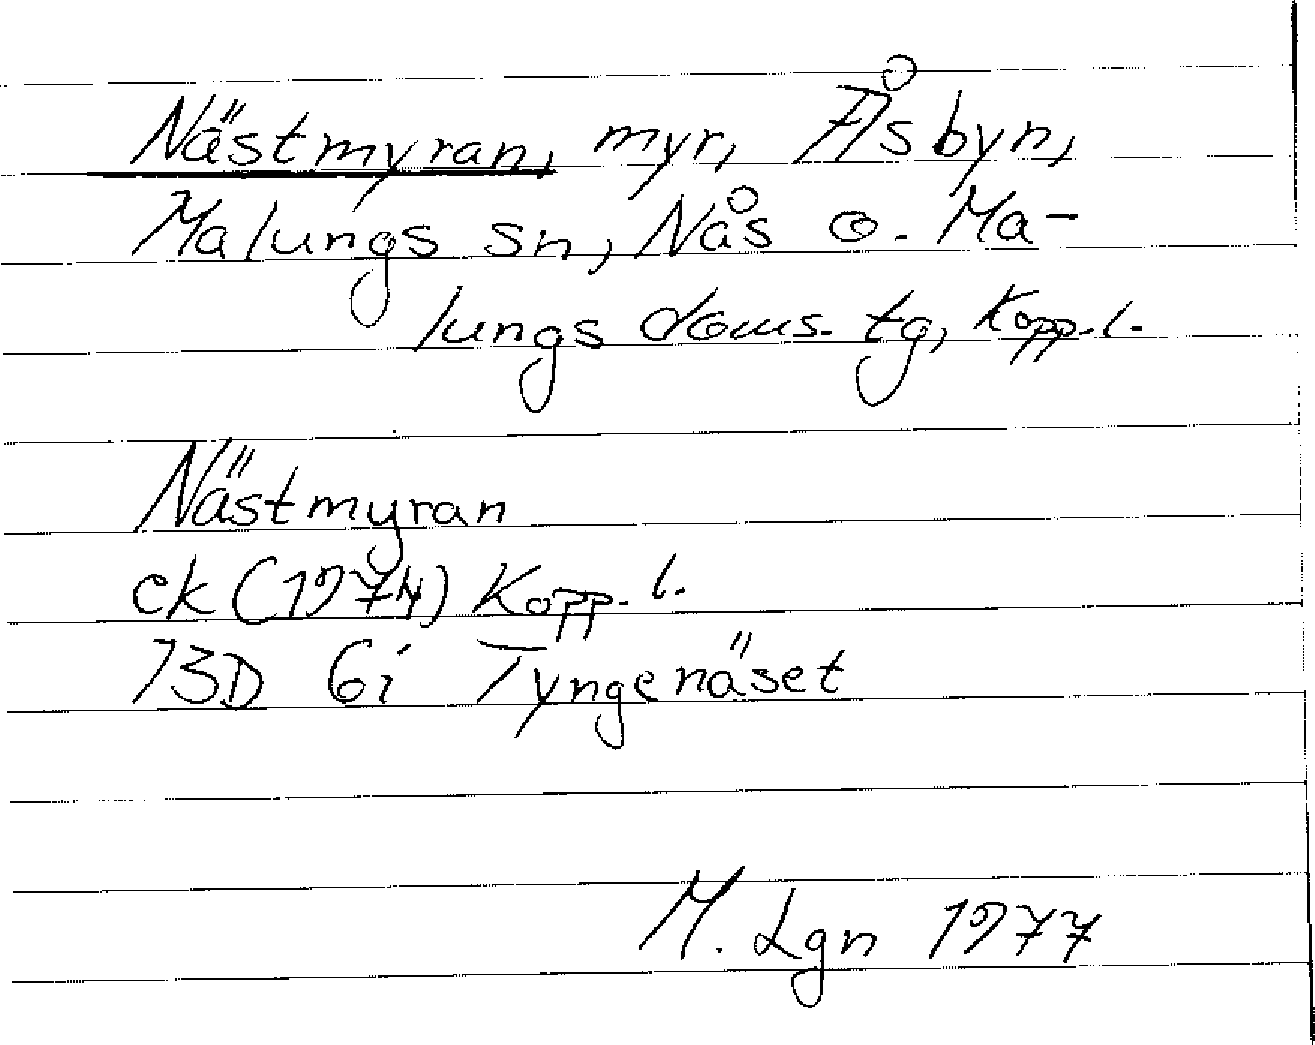 Nästmyran, myr, Åsbyn,
Malungs sn, Nås o. Ma-
lungs doms. tg, Kopp. l.
Nästmyran
ek (1974) Kopp. l.
13D 6i Tyngenäset
M. Lgn 1977